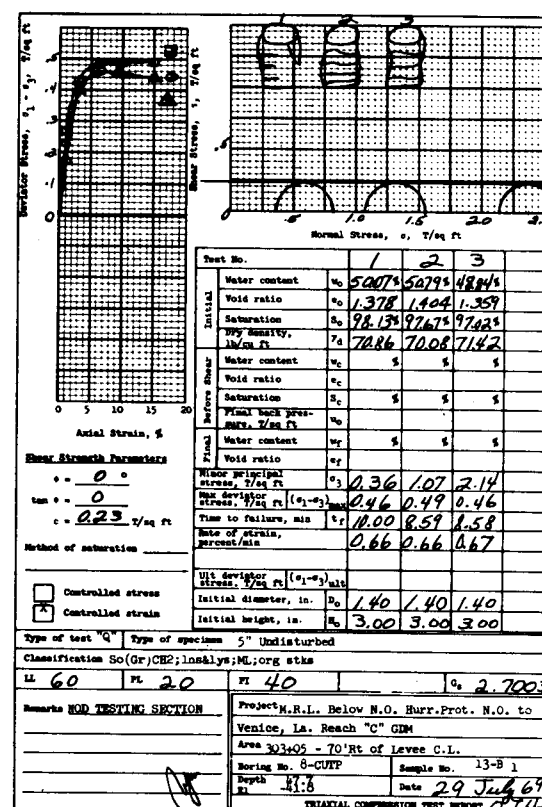 1 2 3
Deviator Stress, σ1 - σ3, T/sq ft
.5
.4
.3
.2
.1
0
Shear Stress, τ, T/sq ft
.5
0
0 .5 1.0 1.5 2.0 2.
Normal Stress, σ, T/sq ft
0 5 10 15 20
Axial Strain, %
Shear Strength Parameters
φ = 0 °
tan φ = 0
c = 0.23 T/sq ft
Method of saturation
Controlled stress
X Controlled strain
Test No. 1 2 3
Initial
Water content w0 50.07% 50.79% 48.84%
Void ratio e0 1.378 1.404 1.359
Saturation S0 98.13% 97.67% 97.02%
Dry density, lb/cu ft γd 70.86 70.08 71.42
Before Shear
Water content wc % % %
Void ratio ec
Saturation Sc % % %
Final back pressure, T/sq ft u0
Final
Water content wf % % %
Void ratio ef
Minor principal stress, T/sq ft σ3 0.36 1.07 2.14
Max deviator stress, T/sq ft (σ1-σ3)max 0.46 0.49 0.46
Time to failure, min tf 10.00 8.59 8.58
Rate of strain, percent/min 0.66 0.66 0.67
Ult deviator stress, T/sq ft (σ1-σ3)ult
Initial diameter, in. D0 1.40 1.40 1.40
Initial height, in. H0 3.00 3.00 3.00
Type of test "Q" Type of specimen 5" Undisturbed
Classification So(Gr)CH2;lns&lys;ML;org stks
LL 60 PL 20 PI 40 Gs 2.700
Remarks MOD TESTING SECTION
Project M.R.L. Below N.O. Hurr.Prot. N.O. to
Venice, La. Reach "C" GDM
Area 303+05 - 70'Rt of Levee C.L.
Boring No. 8-CUTP Sample No. 13-B 1
Depth 47.7
El -41.8 Date 29 July 69
TRIAXIAL COMPRESSION TEST REPORT